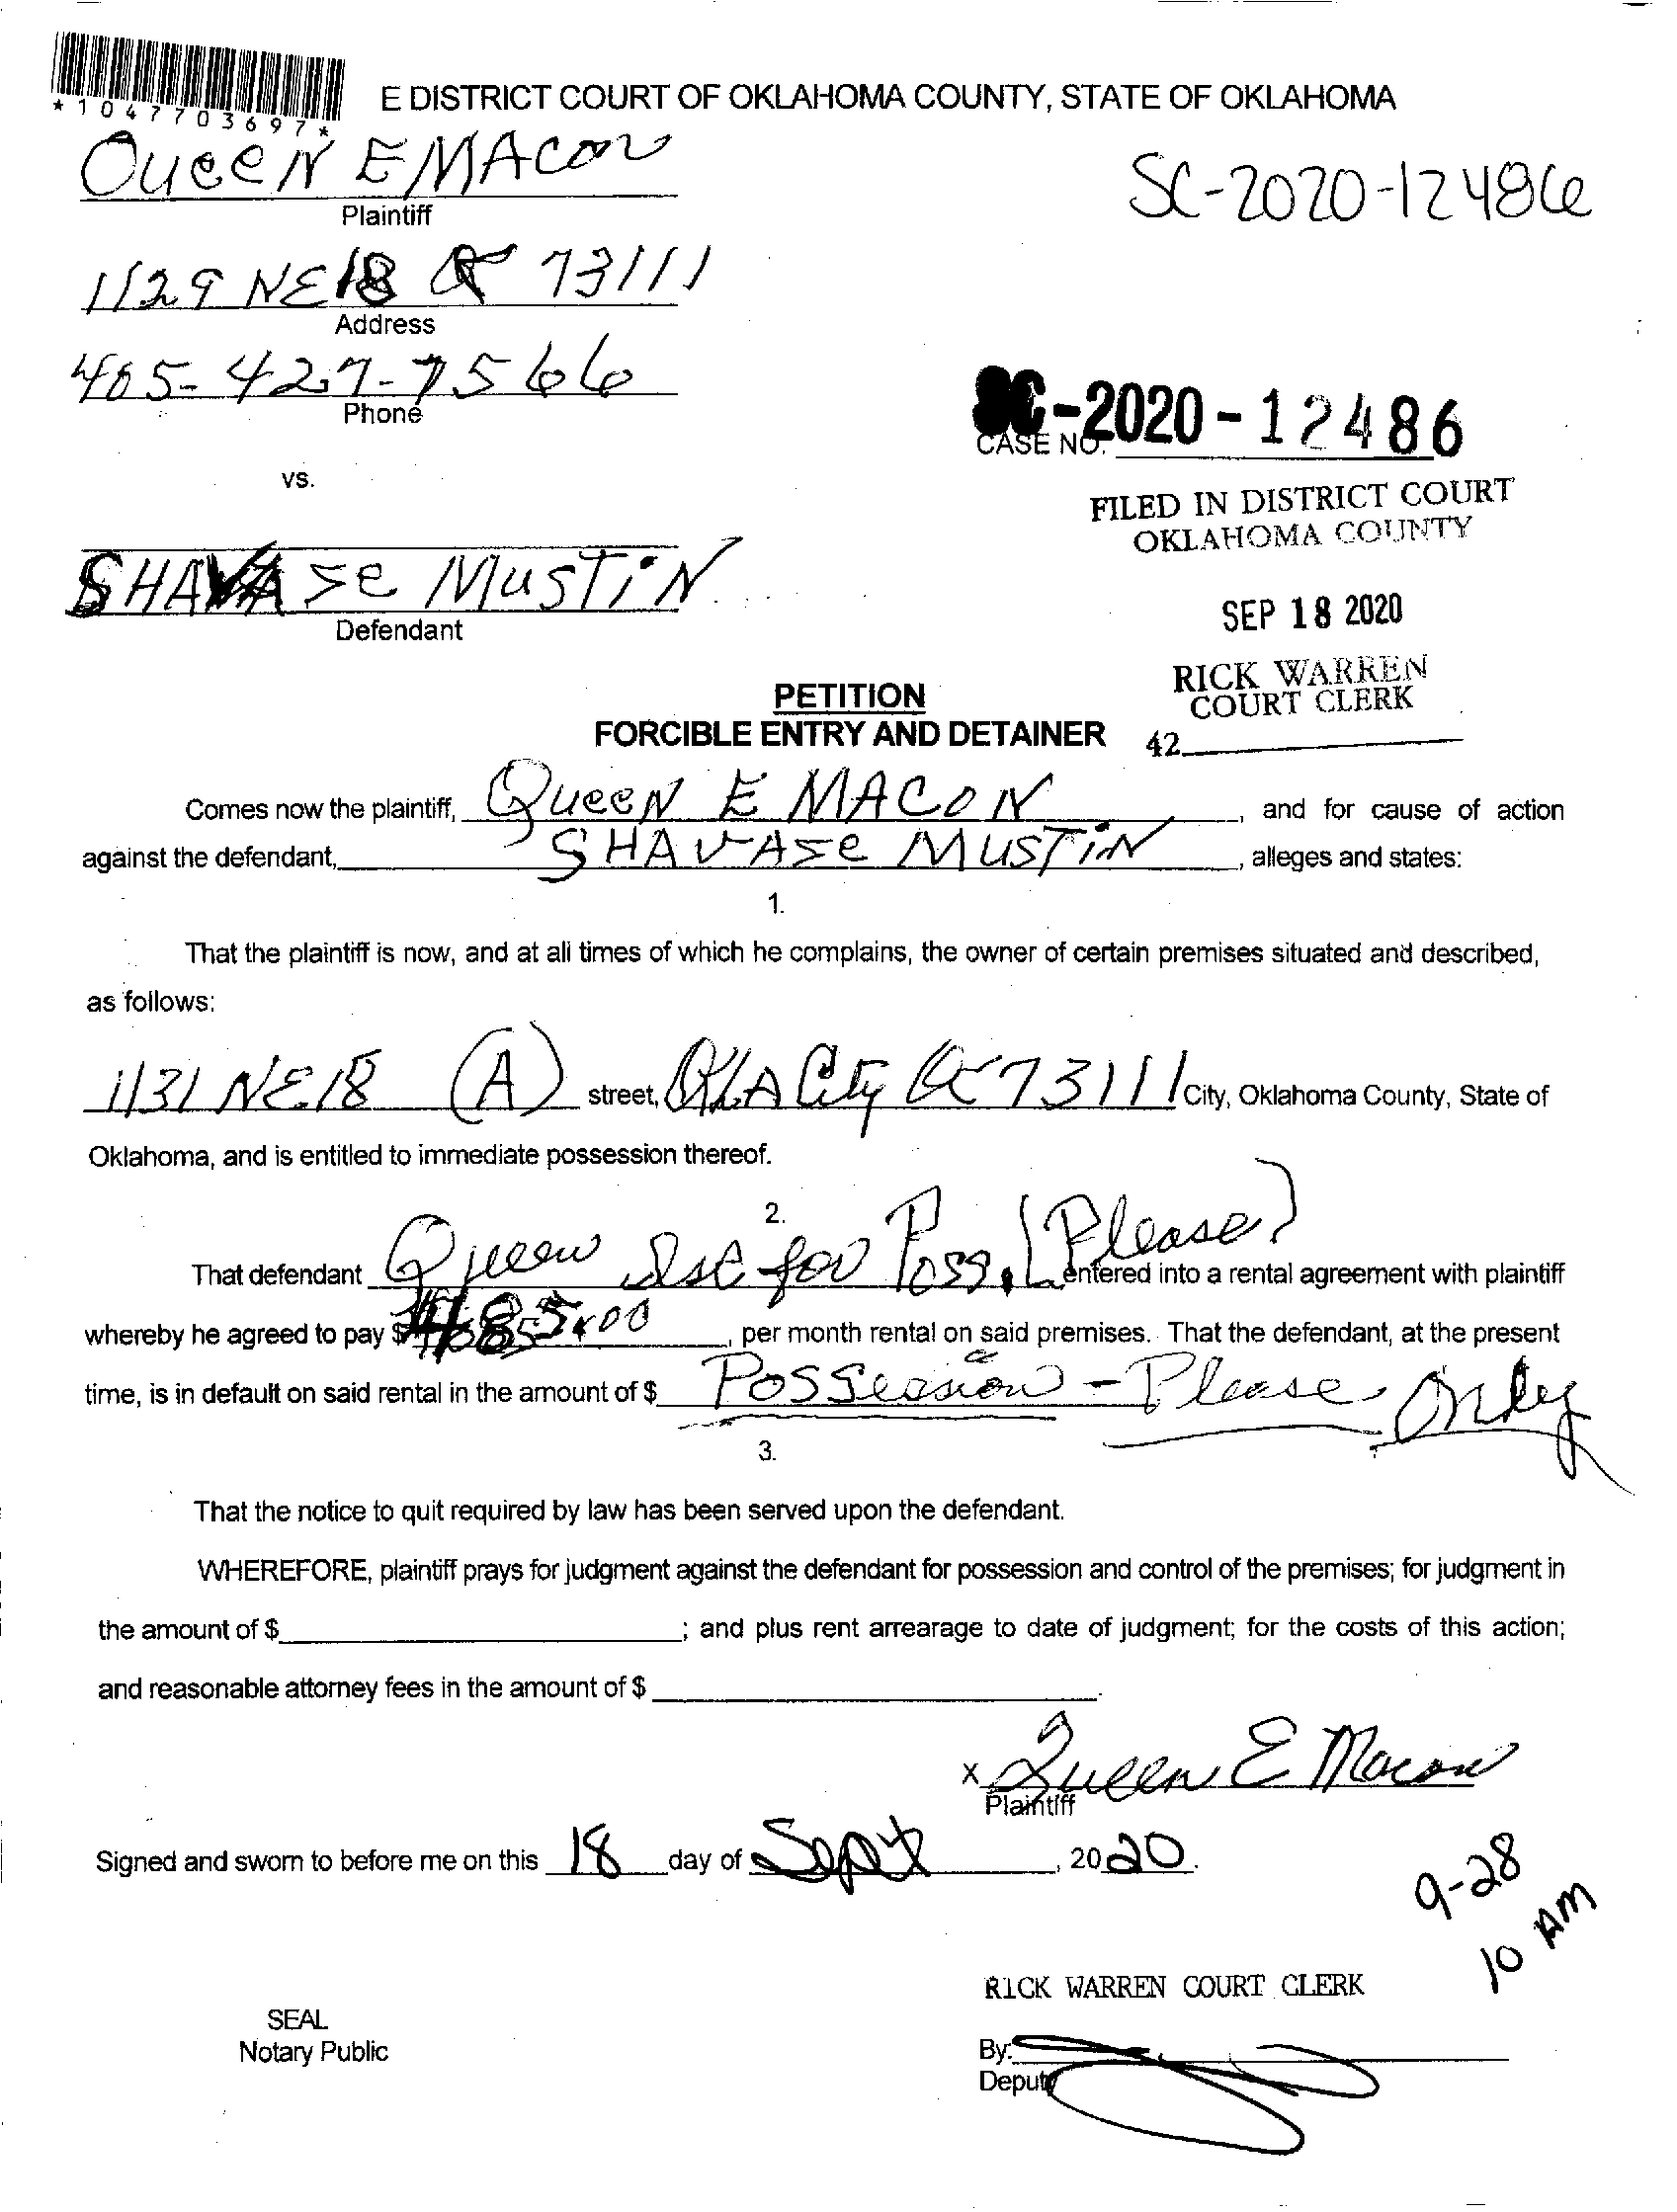 *1047703697*
E DISTRICT COURT OF OKLAHOMA COUNTY, STATE OF OKLAHOMA
Queen E MACON
Plaintiff
SC-2020-12486
1129 NE 18 73111
Address
405-427-7566
Phone
SC-2020-12486
CASE NO.
vs.
FILED IN DISTRICT COURT
OKLAHOMA COUNTY
SHAVASe MUSTiN
Defendant
SEP 18 2020
RICK WARREN
COURT CLERK
PETITION
FORCIBLE ENTRY AND DETAINER
42
Comes now the plaintiff, Queen E MACON, and for cause of action
against the defendant, SHAVASe MUSTiN, alleges and states:
1.
That the plaintiff is now, and at all times of which he complains, the owner of certain premises situated and described,
as follows:
1131 NE 18 (A) street, OKLA City OK 73111 City, Oklahoma County, State of
Oklahoma, and is entitled to immediate possession thereof.
2.
That defendant Queen for Poss. (Please) entered into a rental agreement with plaintiff
whereby he agreed to pay $ 00, per month rental on said premises. That the defendant, at the present
time, is in default on said rental in the amount of $ Possession - Please Only
3.
That the notice to quit required by law has been served upon the defendant.
WHEREFORE, plaintiff prays for judgment against the defendant for possession and control of the premises; for judgment in
the amount of $ ; and plus rent arrearage to date of judgment; for the costs of this action;
and reasonable attorney fees in the amount of $ .
x Queen E Macon
Plaintiff
Signed and sworn to before me on this 18 day of Sept, 2020.
9-28
10 AM
RICK WARREN COURT CLERK
SEAL
Notary Public
By:
Deputy